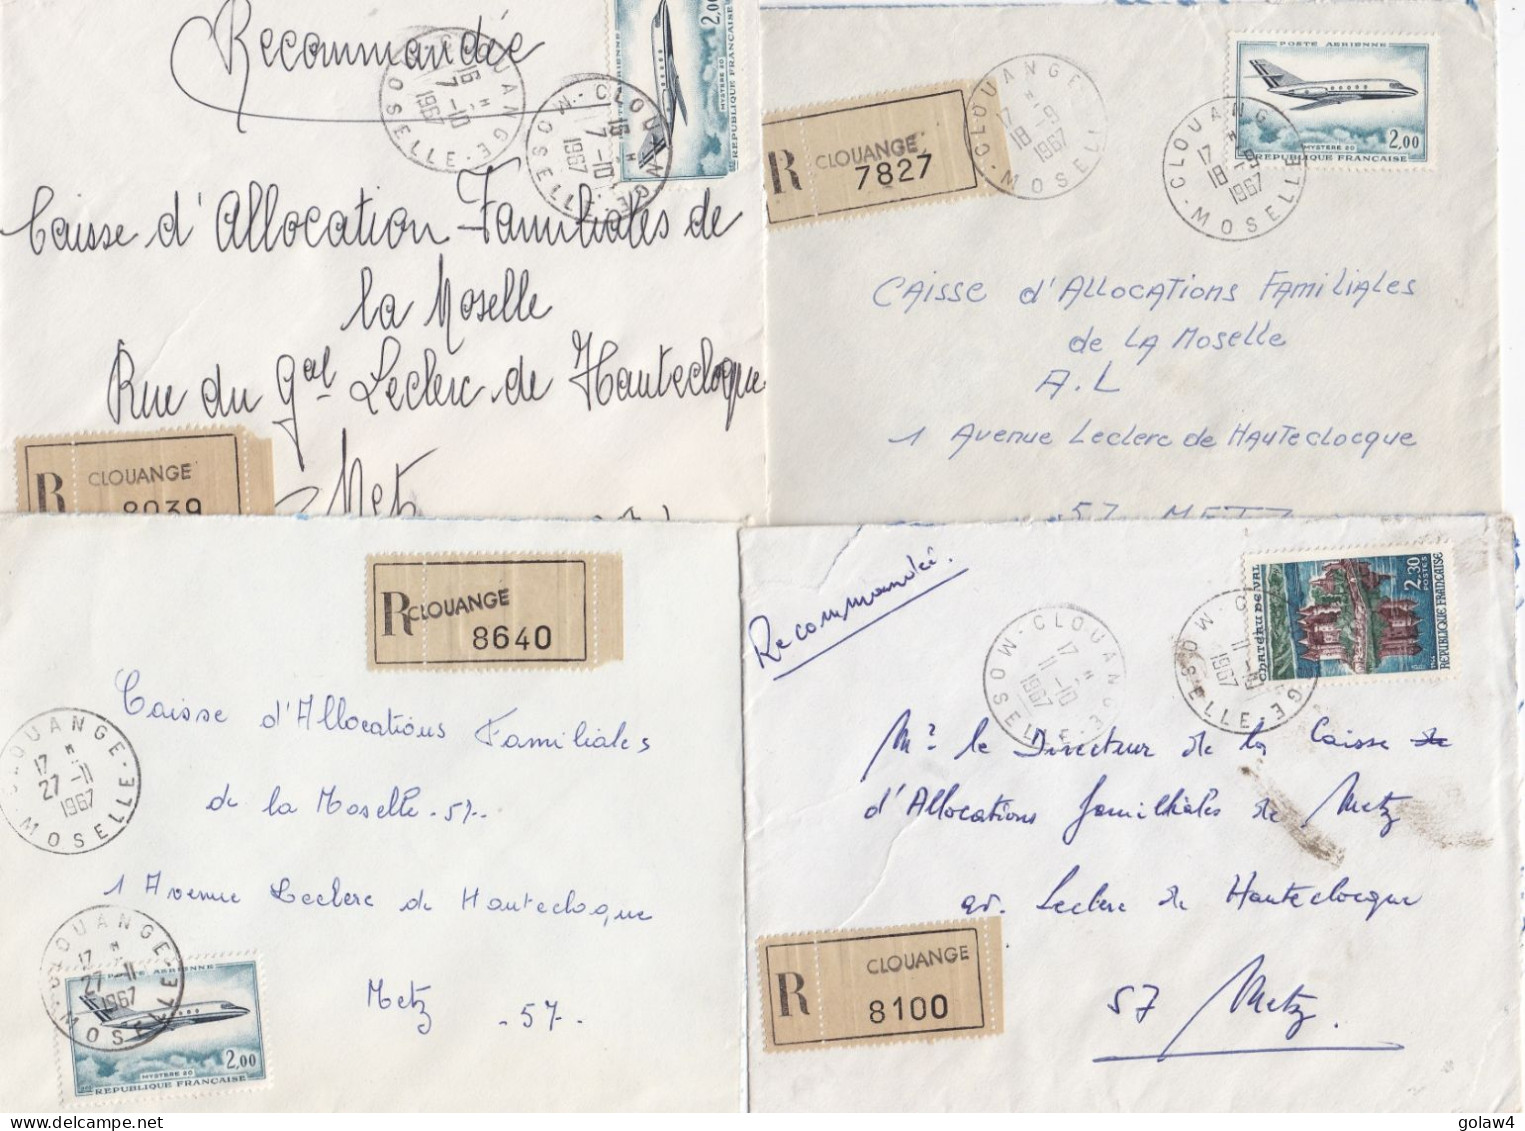 Recommandée
CLOUANGE
16 H
7-10
1967
MOSELLE
CLOUANGE
16 H
7-10
1967
MOSELLE
2,00
POSTE AERIENNE
MYSTERE 20
REPUBLIQUE FRANÇAISE
Caisse d'Allocation Familiales de
la Moselle
Rue du Gal Leclerc de Hauteclocque
Metz
R CLOUANGE
8039
R CLOUANGE
7827
CLOUANGE
17 H
18-9
1967
MOSELLE
CLOUANGE
17 H
18-9
1967
MOSELLE
POSTE AERIENNE
2,00
MYSTERE 20
REPUBLIQUE FRANÇAISE
CAISSE d'ALLOCATIONS FAMILIALES
de LA MOSELLE
A.L
1 Avenue Leclerc de HAUTECLOCQUE
57 METZ
R CLOUANGE
8640
Caisse d'Allocations Familiales
de la Moselle -57-
1 Avenue Leclerc de Hauteclocque
Metz -57-
CLOUANGE
17 H
27-11
1967
MOSELLE
CLOUANGE
17 H
27-11
1967
MOSELLE
POSTE AERIENNE
2,00
MYSTERE 20
REPUBLIQUE FRANÇAISE
Recommandée
CLOUANGE
17 H
11-10
1967
MOSELLE
CLOUANGE
11-10
1967
MOSELLE
CHATEAU DE VAL
2,30
POSTES
REPUBLIQUE FRANÇAISE
Mr le Directeur de la Caisse de
d'Allocations familliales de Metz
av. Leclerc de Hauteclocque
57 Metz.
R CLOUANGE
8100
golaw4